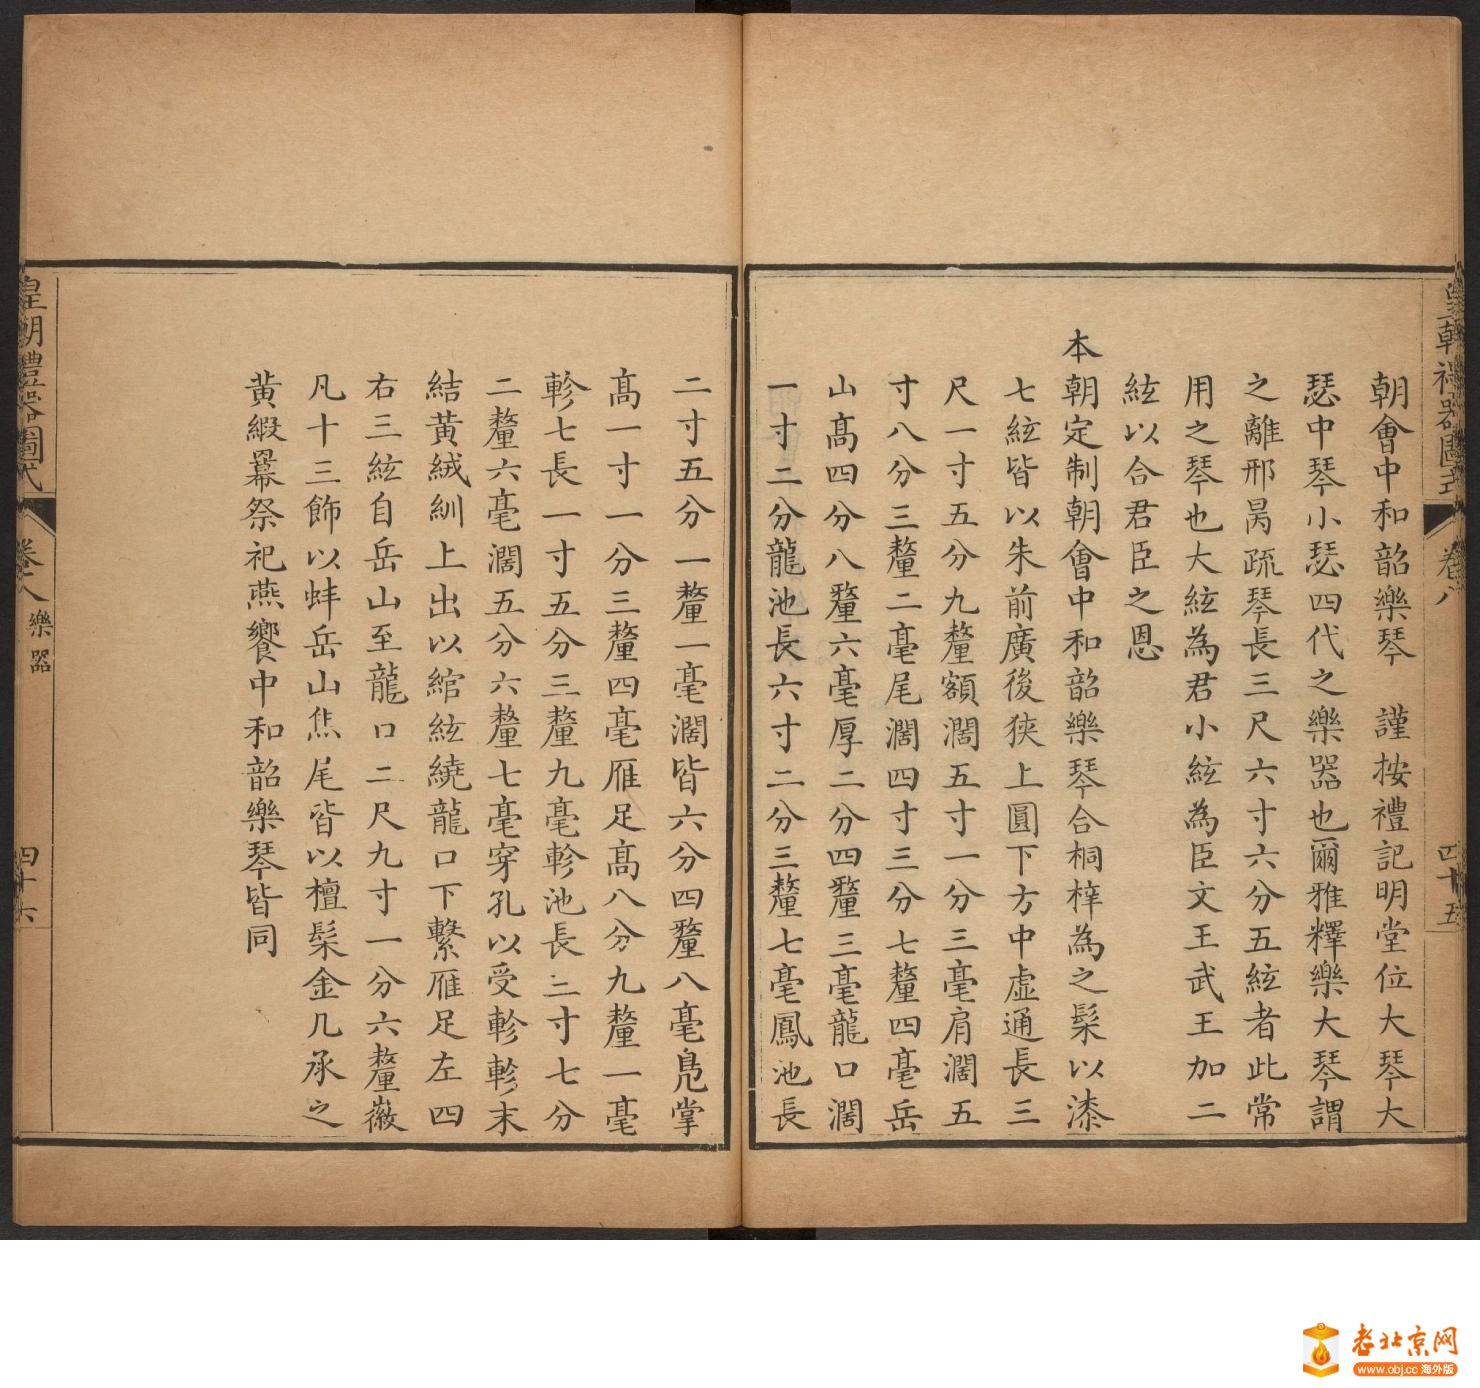 皇朝禮器圖式
卷八
四十五
朝會中和韶樂琴　謹按禮記明堂位大琴大
瑟中琴小瑟四代之樂器也爾雅釋樂大琴謂
之離邢昺疏琴長三尺六寸六分五絃者此常
用之琴也大絃為君小絃為臣文王武王加二
絃以合君臣之恩
本朝定制朝會中和韶樂琴合桐梓為之髹以漆
七絃皆以朱前廣後狹上圓下方中虛通長三
尺一寸五分九釐額濶五寸一分三毫肩濶五
寸八分三釐二毫尾濶四寸三分七釐四毫岳
山高四分八釐六毫厚二分四釐三毫龍口濶
一寸二分龍池長六寸二分三釐七毫鳳池長
二寸五分一釐一毫濶皆六分四釐八毫鳧掌
高一寸一分三釐四毫雁足高八分九釐一毫
軫七長一寸五分三釐九毫軫池長三寸七分
二釐六毫濶五分六釐七毫穿孔以受軫軫末
結黄絨紃上出以綰絃繞龍口下繫雁足左四
右三絃自岳山至龍口二尺九寸一分六釐徽
凡十三飾以蚌岳山焦尾皆以檀髹金几承之
黄緞羃祭祀燕饗中和韶樂琴皆同
皇朝禮器圖式
卷八
樂器
四十六
老北京网
www.obj.cc 海外版